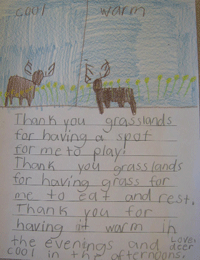 cool warm
Thank you grasslands
for having a spot
for me to play!
Thank you grasslands
for having grass for
me to eat and rest.
Thank you for
having it warm in
the evenings and
cool in the afternoons.
Love,
deer